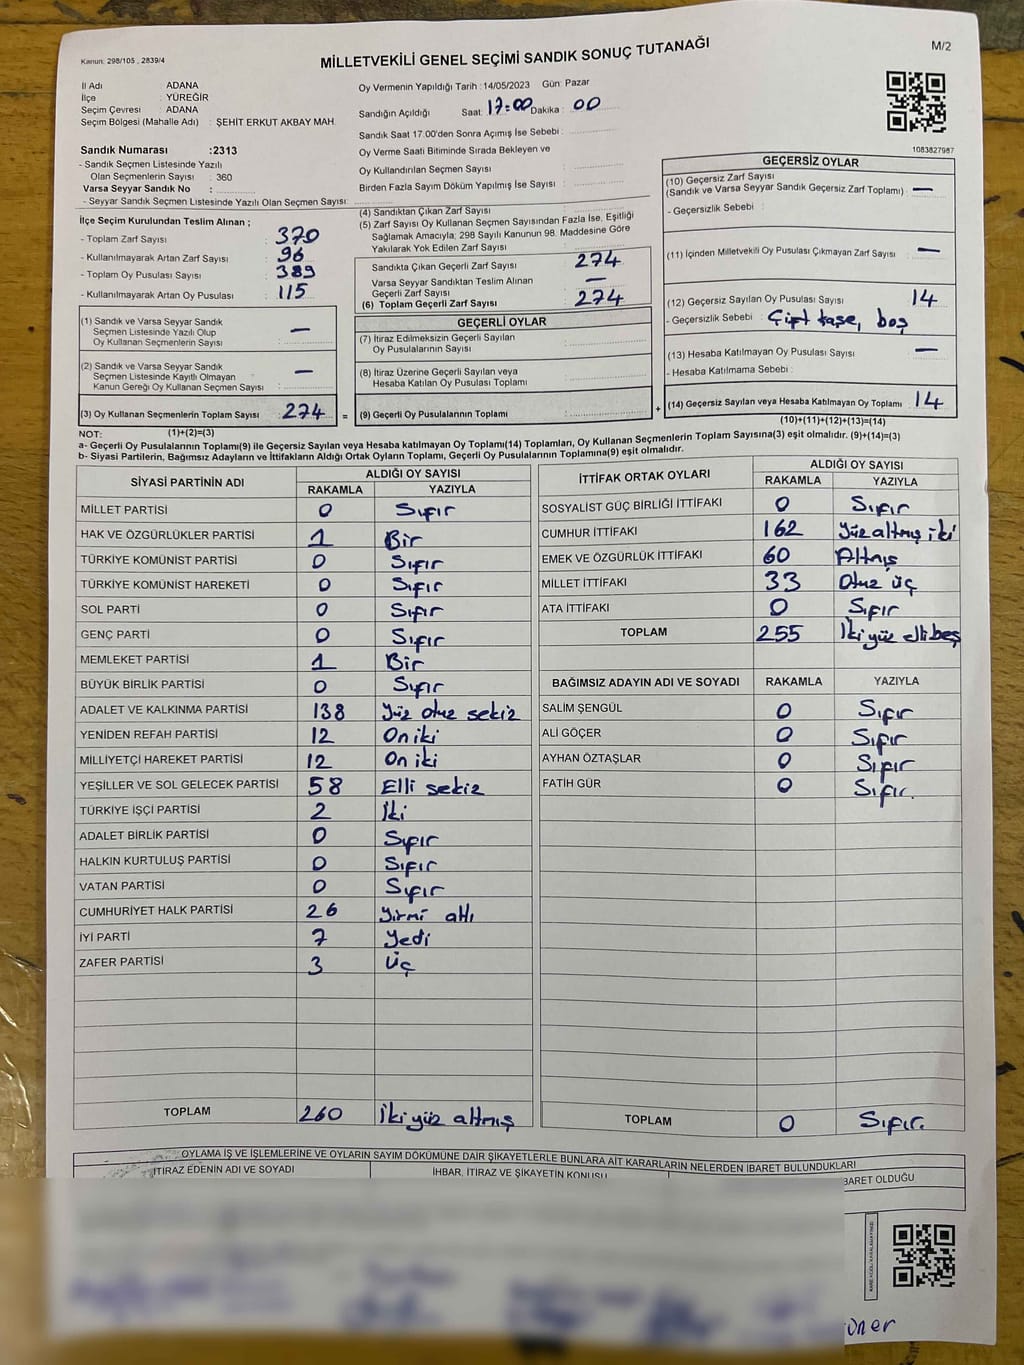 M/2
Kanun: 298/105 , 2839/4
MİLLETVEKİLİ GENEL SEÇİMİ SANDIK SONUÇ TUTANAĞI
İl Adı ADANA
İlçe YÜREĞİR
Seçim Çevresi ADANA
Seçim Bölgesi (Mahalle Adı) : ŞEHİT ERKUT AKBAY MAH.
Sandık Numarası :2313
- Sandık Seçmen Listesinde Yazılı
Olan Seçmenlerin Sayısı : 360
Varsa Seyyar Sandık No :
- Seyyar Sandık Seçmen Listesinde Yazılı Olan Seçmen Sayısı:
Oy Vermenin Yapıldığı Tarih :14/05/2023 Gün: Pazar
Sandığın Açıldığı Saat: 17:00 Dakika : 00
Sandık Saat 17.00'den Sonra Açımış İse Sebebi :
Oy Verme Saati Bitiminde Sırada Bekleyen ve
Oy Kullandırılan Seçmen Sayısı :
Birden Fazla Sayım Döküm Yapılmış İse Sayısı :
1083827987
İlçe Seçim Kurulundan Teslim Alınan ;
- Toplam Zarf Sayısı : 370
- Kullanılmayarak Artan Zarf Sayısı : 96
- Toplam Oy Pusulası Sayısı : 389
- Kullanılmayarak Artan Oy Pusulası : 115
(1) Sandık ve Varsa Seyyar Sandık
Seçmen Listesinde Yazılı Olup
Oy Kullanan Seçmenlerin Sayısı : —
(2) Sandık ve Varsa Seyyar Sandık
Seçmen Listesinde Kayıtlı Olmayan
Kanun Gereği Oy Kullanan Seçmen Sayısı : —
(3) Oy Kullanan Seçmenlerin Toplam Sayısı : 274 =
(1)+(2)=(3)
(4) Sandıktan Çıkan Zarf Sayısı :
(5) Zarf Sayısı Oy Kullanan Seçmen Sayısından Fazla İse, Eşitliği
Sağlamak Amacıyla; 298 Sayılı Kanunun 98. Maddesine Göre
Yakılarak Yok Edilen Zarf Sayısı :
Sandıkta Çıkan Geçerli Zarf Sayısı : 274
Varsa Seyyar Sandıktan Teslim Alınan
Geçerli Zarf Sayısı : —
(6) Toplam Geçerli Zarf Sayısı : 274
GEÇERLİ OYLAR
(7) İtiraz Edilmeksizin Geçerli Sayılan
Oy Pusulalarının Sayısı :
(8) İtiraz Üzerine Geçerli Sayılan veya
Hesaba Katılan Oy Pusulası Toplamı :
(9) Geçerli Oy Pusulalarının Toplamı : +
GEÇERSİZ OYLAR
(10) Geçersiz Zarf Sayısı
(Sandık ve Varsa Seyyar Sandık Geçersiz Zarf Toplamı) : —
- Geçersizlik Sebebi :
(11) İçinden Milletvekili Oy Pusulası Çıkmayan Zarf Sayısı : —
(12) Geçersiz Sayılan Oy Pusulası Sayısı : 14
- Geçersizlik Sebebi : Çift kaşe, boş
(13) Hesaba Katılmayan Oy Pusulası Sayısı : —
- Hesaba Katılmama Sebebi :
(14) Geçersiz Sayılan veya Hesaba Katılmayan Oy Toplamı : 14
(10)+(11)+(12)+(13)=(14)
NOT:
a- Geçerli Oy Pusulalarının Toplamı(9) ile Geçersiz Sayılan veya Hesaba katılmayan Oy Toplamı(14) Toplamları, Oy Kullanan Seçmenlerin Toplam Sayısına(3) eşit olmalıdır. (9)+(14)=(3)
b- Siyasi Partilerin, Bağımsız Adayların ve İttifakların Aldığı Ortak Oyların Toplamı, Geçerli Oy Pusulalarının Toplamına(9) eşit olmalıdır.
SİYASİ PARTİNİN ADI ALDIĞI OY SAYISI
RAKAMLA YAZIYLA
MİLLET PARTİSİ 0 Sıfır
HAK VE ÖZGÜRLÜKLER PARTİSİ 1 Bir
TÜRKİYE KOMÜNİST PARTİSİ 0 Sıfır
TÜRKİYE KOMÜNİST HAREKETİ 0 Sıfır
SOL PARTİ 0 Sıfır
GENÇ PARTİ 0 Sıfır
MEMLEKET PARTİSİ 1 Bir
BÜYÜK BİRLİK PARTİSİ 0 Sıfır
ADALET VE KALKINMA PARTİSİ 138 Yüz otuz sekiz
YENİDEN REFAH PARTİSİ 12 On iki
MİLLİYETÇİ HAREKET PARTİSİ 12 On iki
YEŞİLLER VE SOL GELECEK PARTİSİ 58 Elli sekiz
TÜRKİYE İŞÇİ PARTİSİ 2 İki
ADALET BİRLİK PARTİSİ 0 Sıfır
HALKIN KURTULUŞ PARTİSİ 0 Sıfır
VATAN PARTİSİ 0 Sıfır
CUMHURİYET HALK PARTİSİ 26 Yirmi altı
İYİ PARTİ 7 Yedi
ZAFER PARTİSİ 3 Üç
TOPLAM 260 İki yüz altmış
İTTİFAK ORTAK OYLARI ALDIĞI OY SAYISI
RAKAMLA YAZIYLA
SOSYALİST GÜÇ BİRLİĞİ İTTİFAKI 0 Sıfır
CUMHUR İTTİFAKI 162 Yüz altmış iki
EMEK VE ÖZGÜRLÜK İTTİFAKI 60 Altmış
MİLLET İTTİFAKI 33 Otuz üç
ATA İTTİFAKI 0 Sıfır
TOPLAM 255 İki yüz elli beş
BAĞIMSIZ ADAYIN ADI VE SOYADI RAKAMLA YAZIYLA
SALİM ŞENGÜL 0 Sıfır
ALİ GÖÇER 0 Sıfır
AYHAN ÖZTAŞLAR 0 Sıfır
FATİH GÜR 0 Sıfır.
TOPLAM 0 Sıfır.
OYLAMA İŞ VE İŞLEMLERİNE VE OYLARIN SAYIM DÖKÜMÜNE DAİR ŞİKAYETLERLE BUNLARA AİT KARARLARIN NELERDEN İBARET BULUNDUKLARI
İTİRAZ EDENİN ADI VE SOYADI İHBAR, İTİRAZ VE ŞİKAYETİN KONUSU BARET OLDUĞU